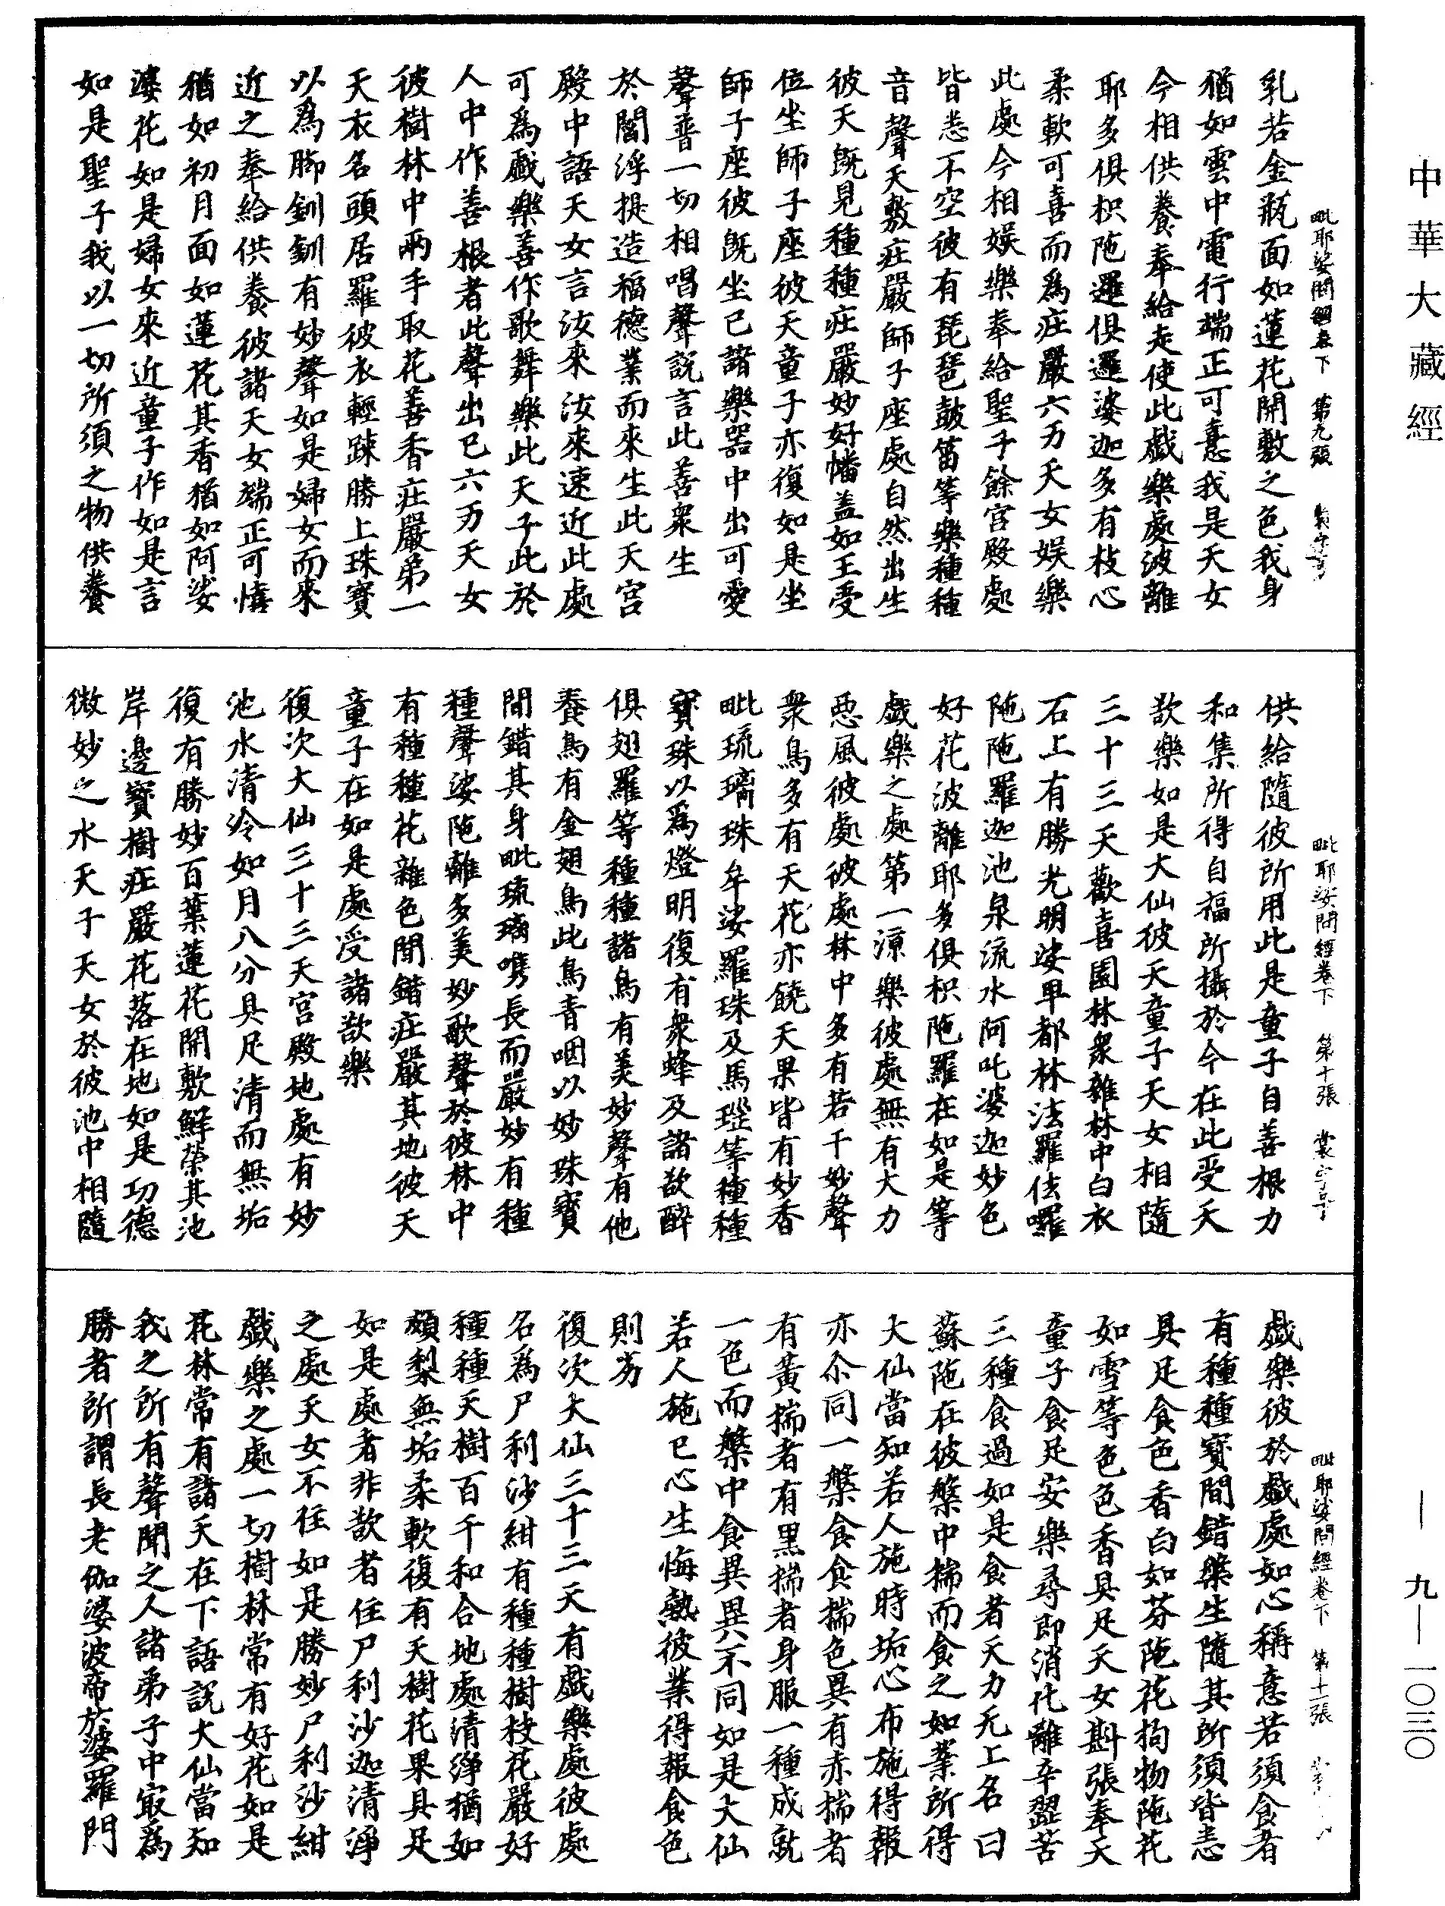 中華大藏經
毗耶娑問經卷下　第九張
乳若金瓶面如蓮花開敷之色我身
猶如雲中電行端正可憙我是天女
今相供養奉給走使此戲樂處波離
耶多俱枳陁邏俱邏婆迦多有枝心
柔軟可喜而爲莊嚴六万天女娛樂
此處今相娛樂奉給聖子餘宮殿處
皆悉不空彼有琵琶皷笛等樂種種
音聲天敷莊嚴師子座處自然出生
彼天既見種種莊嚴妙好幡蓋如王受
位坐師子座彼天童子亦復如是坐
師子座彼既坐已諸樂器中出可愛
聲普一切相唱聲說言此善衆生
於閻浮提造福德業而來生此天宮
殿中語天女言汝來汝來速近此處
可爲戲樂善作歌舞樂此天子此於
人中作善根者此聲出已六万天女
彼樹林中兩手取花善香莊嚴弟一
天衣名頭居羅彼衣輕踈勝上珠寶
以爲脚釧釧有妙聲如是婦女而來
近之奉給供養彼諸天女端正可憘
猶如初月面如蓮花其香猶如阿娑
婆花如是婦女來近童子作如是言
如是聖子我以一切所須之物供養
毗耶娑問經卷下　第十張
供給隨彼所用此是童子自善根力
和集所得自福所攝於今在此受天
欲樂如是大仙彼天童子天女相隨
三十三天歡喜園林衆雜林中白衣
石上有勝光明娑卑都林法羅佉囉
陁陁羅迦池泉流水阿吒婆迦妙色
好花波離耶多俱枳陁羅在如是等
戲樂之處第一涼樂彼處無有大力
惡風彼處彼處林中多有若干妙聲
衆鳥多有天花亦饒天果皆有妙香
毗琉璃珠牟娑羅珠及馬瑙等種種
寶珠以爲燈明復有衆蜂及諸欲醉
俱翅羅等種種諸鳥有美妙聲有他
養鳥有金翅鳥此鳥青咽以妙珠寶
間錯其身毗琉璃嘴長而嚴妙有種
種聲娑陁離多美妙歌聲於彼林中
有種種花雜色間錯莊嚴其地彼天
童子在如是處受諸欲樂
復次大仙三十三天宮殿地處有妙
池水清冷如月八分具足清而無垢
復有勝妙百葉蓮花開敷鮮榮其池
岸邊寶樹莊嚴花落在地如是功德
微妙之水天子天女於彼池中相隨
毗耶娑問經卷下　第十一張
戲樂彼於戲處如心稱意若須食者
有種種寶間錯槃生隨其所須皆悉
具足食色香白如芬陁花拘物陁花
如雪等色色香具足天女斟張奉天
童子食足安樂尋即消化離辛澀苦
三種食過如是食者天力无上名曰
蘇陁在彼槃中揣而食之如業所得
大仙當知若人施時垢心布施得報
亦尒同一槃食食揣色異有赤揣者
有黃揣者有黑揣者身服一種成就
一色而槃中食異異不同如是大仙
若人施已心生悔熱彼業得報食色
則劣
復次大仙三十三天有戲樂處彼處
名爲尸利沙紺有種種樹枝花嚴好
種種天樹百千和合地處清淨猶如
頗梨無垢柔軟復有天樹花果具足
如是處者非欲者住尸利沙迦清淨
之處天女不往如是勝妙尸利沙紺
戲樂之處一切樹林常有好花如是
花林常有諸天在下語說大仙當知
我之所有聲聞之人諸弟子中㝡爲
勝者所謂長老伽婆波帝於婆羅門
九—一〇三〇